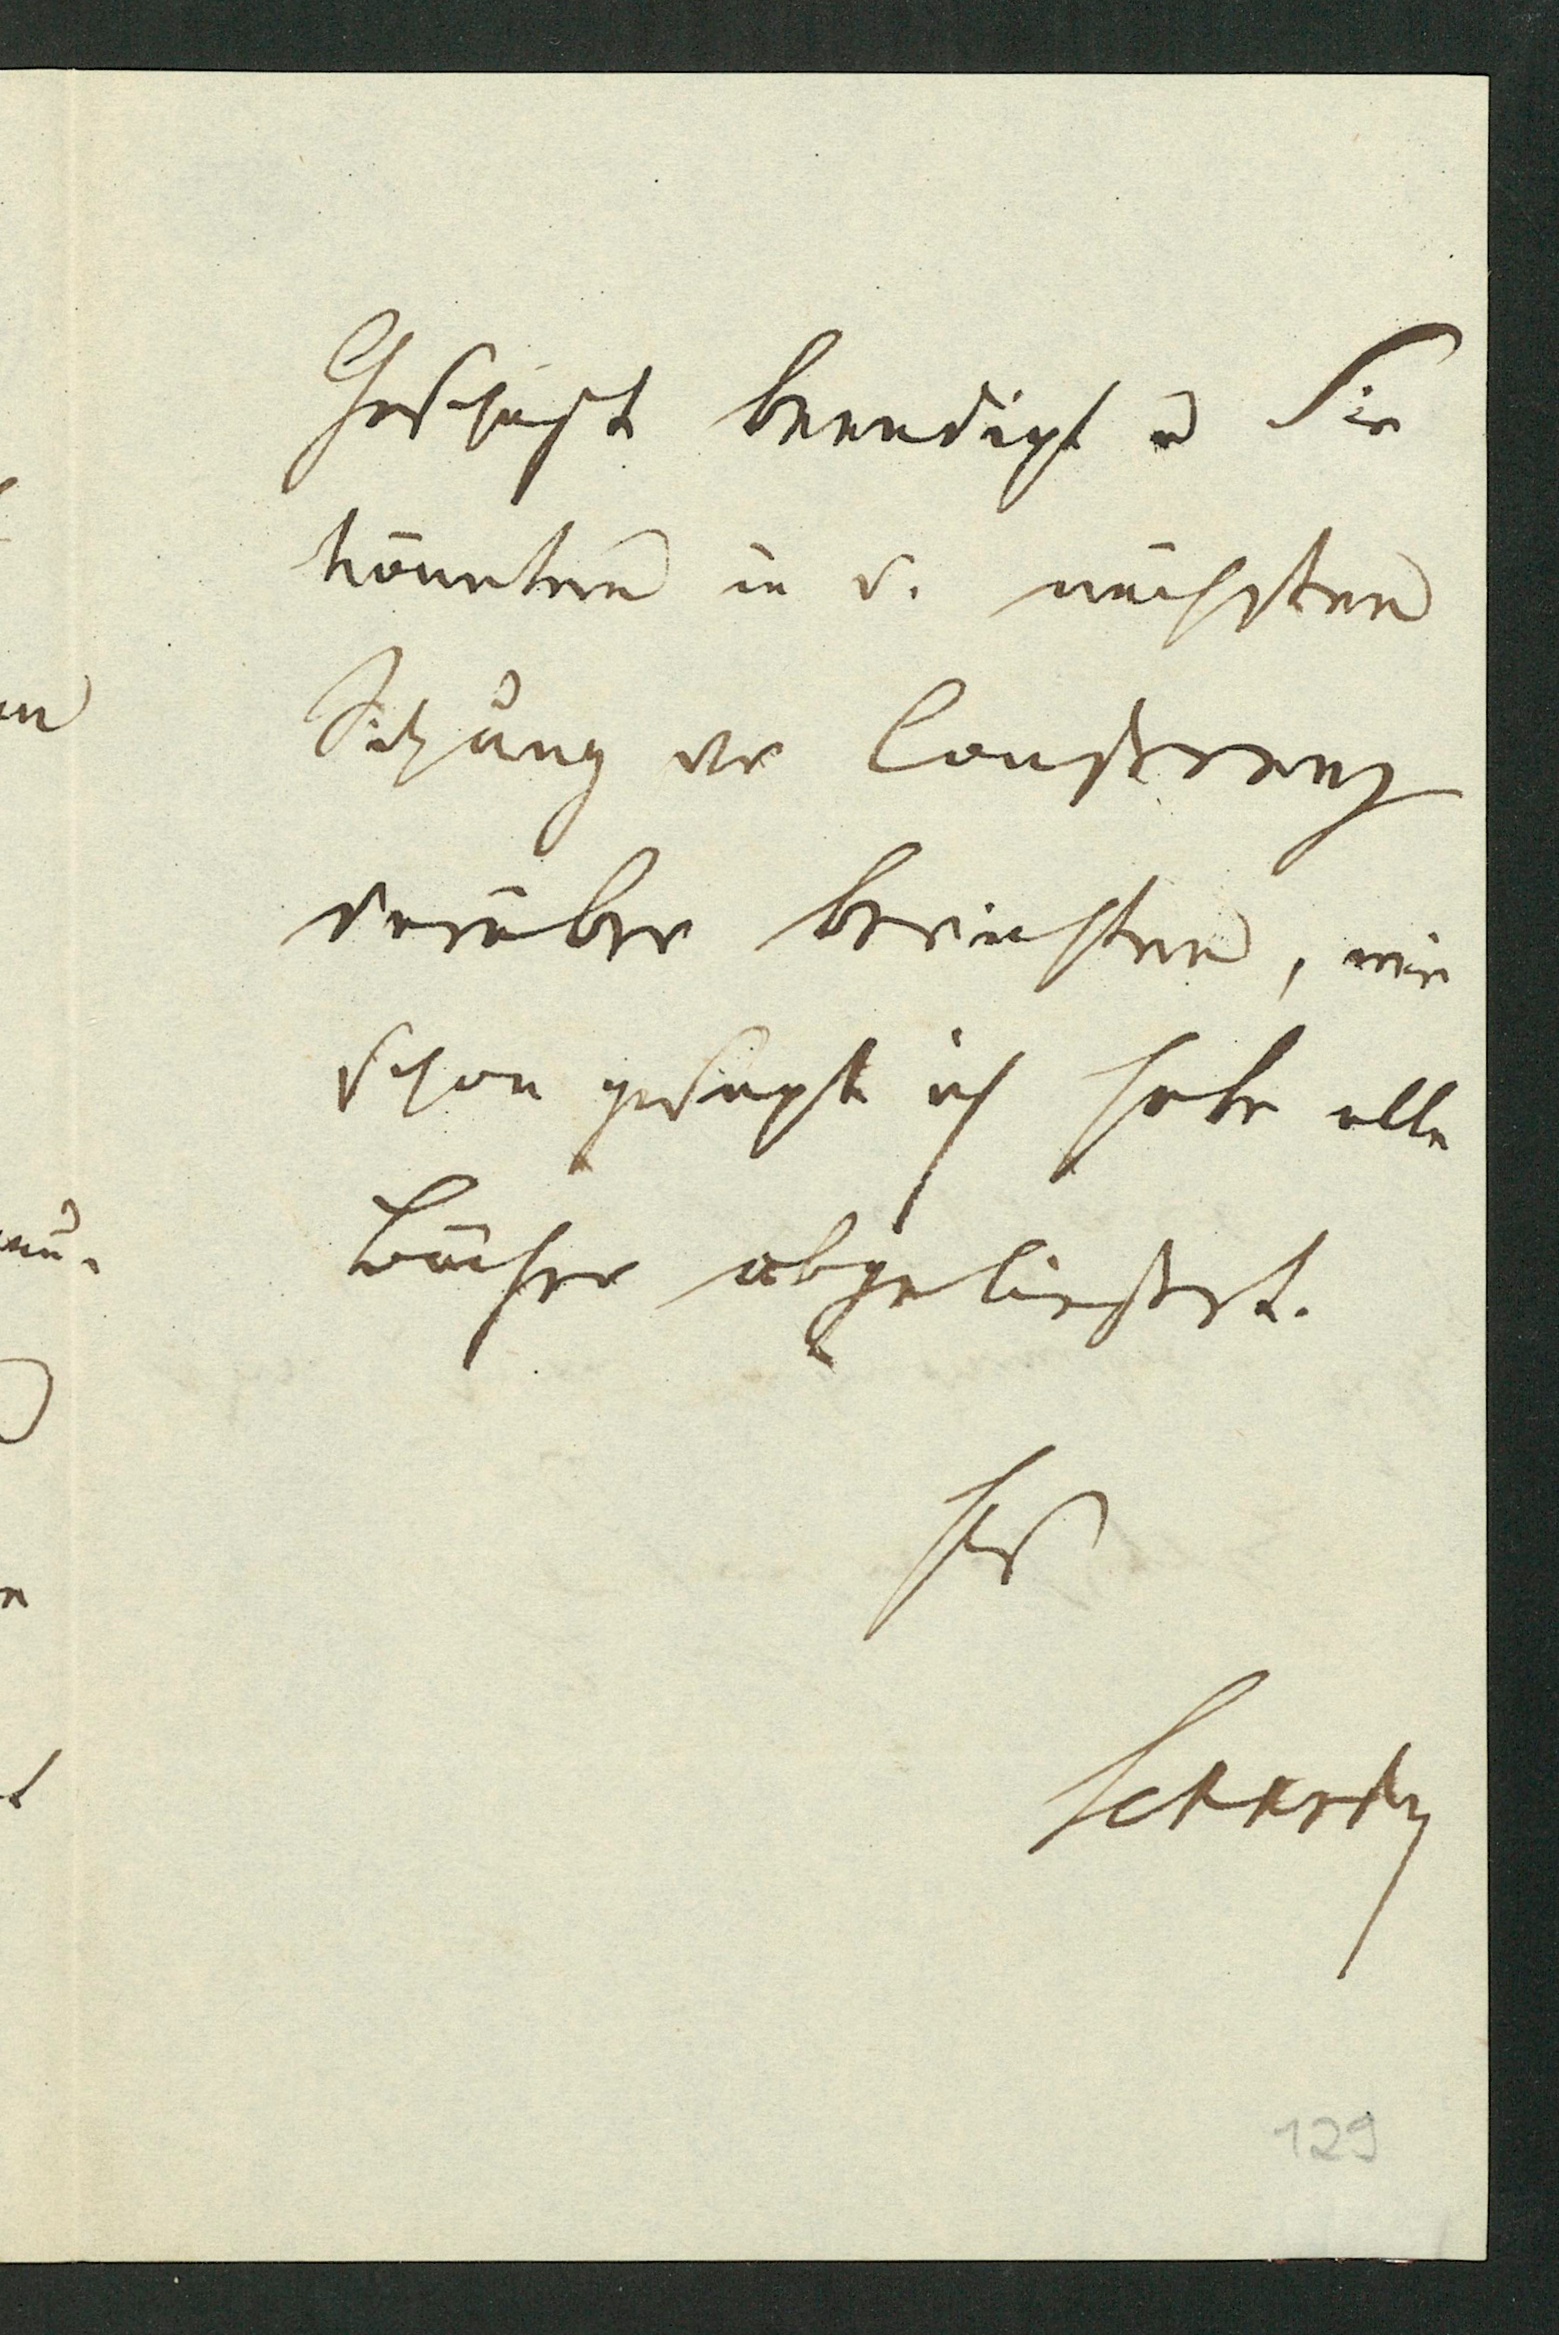 Geschäft beendigt u Sie
könnten in d. nächsten
Sitzung der Conferenz
darüber berichten, wie
schon gesagt ich habe alle
Bücher abgeliefert.
Ihr
129